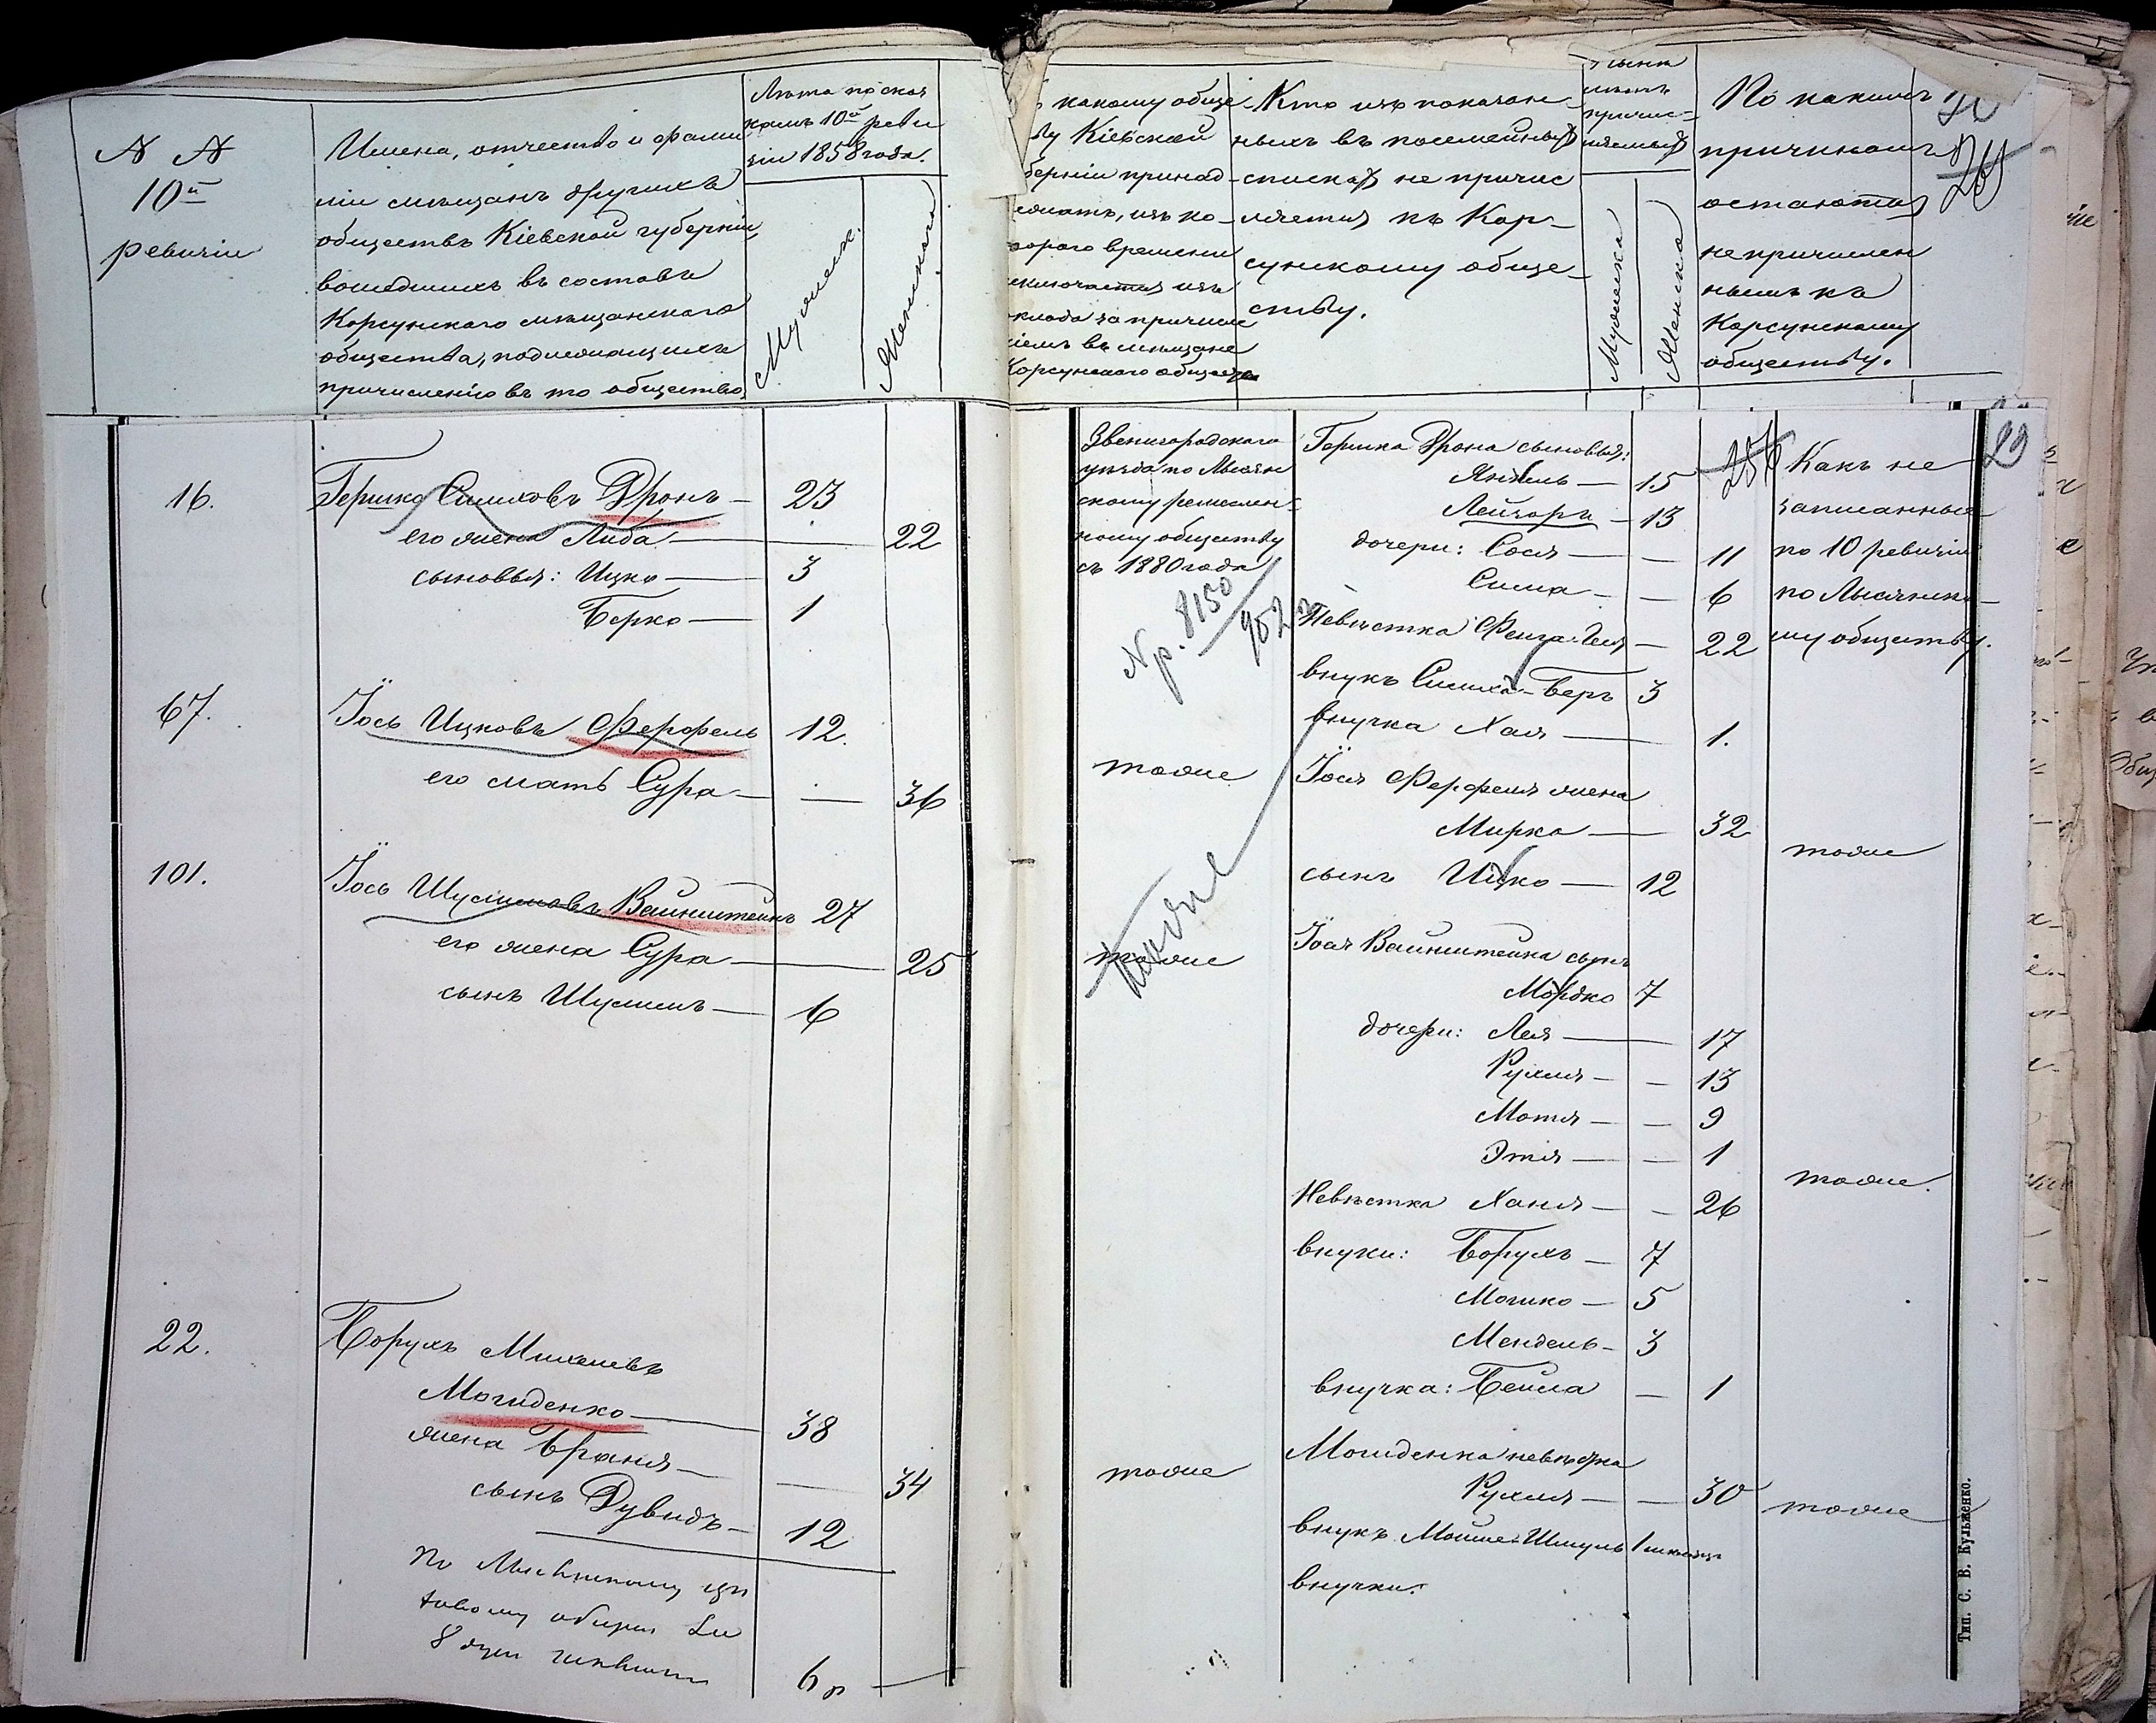 № №
10й
ревизіи
Имена, отчество и фами
ліи мѣщанъ другихъ
обществъ Кіевской губерніи,
вошедшихъ въ составъ
Корсунскаго мѣщанскаго
общества, подлежащихъ
причисленію въ то общество.
Лѣта по сказ
камъ 10й реви
зіи 1858 года.
Мужеск.
Женскаго
какому обще-
ву Кіевской
берніи принад-
лежатъ, изъ ко-
тораго времени
исключаются изъ
оклада за причисле
ніемъ въ мѣщане
Корсунскаго общества
Кто изъ показан-
ныхъ въ посемейныхъ
спискахъ не причис
ляется къ Кор-
сунскому обще-
ству.
причис-
ляемыхъ
Мужеска
Женска
По какимъ
причинамъ
остаются
не причислен
ными къ
Корсунскому
обществу.
29
16.
Гершко Симховъ Дронъ — 23
его жена Либа — 22
сыновья: Ицко — 3
Берко — 1
67.
Іось Ицковъ Ферфель 12.
его мать Сура — — 36
101.
Іось Шулимовъ Вайнштейнъ 27
его жена Сура — 25
сынъ Шулимъ — 6
22.
Борухъ Михелевъ
Могиденко — 38
жена Браня — — 34
сынъ Дувидъ — 12
8 душ
6 р
Звенигородскаго
уѣзда по Лысян
скому ремеслен-
ному обществу
съ 1880 года
№ р. 8150
902
тоже
тоже
тоже
тоже
Гершка Дрона сыновья:
Янкель — 15
Лейзоръ — 13
дочери: Сося — — 11
Сима — — 6
Невѣстка Фейга-Лея — 22
внукъ Симха-Беръ 3
внучка Хая — 1.
Іося Ферфеля жена
Мирка — 32
сынъ Ицко — 12
Іося Вайнштейна сынъ
Мордко 7
дочери: Лея — 17
Рухля — — 13
Мотя — — 9
Этя — — 1
Невѣстка Ханя — — 26
внуки: Борухъ — 7
Мошко — 5
Мендель — 3
внучка: Бейла — 1
Могиденка невѣстка
Рухля — — 30
внукъ Мойше-Шмуль 1 мѣсяцъ
внучки:
256
Какъ не
записанные
по 10 ревизіи
по Лысянско-
му обществу.
тоже
тоже.
тоже
Тип. С. В. Кульженко.